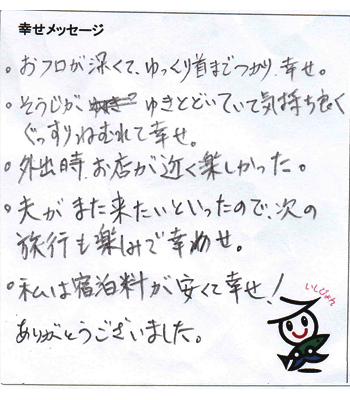 幸せメッセージ
。おフロが深くて、ゆっくり首までつかり、幸せ。
。そうじが ゆきとどいていて気持ち良く
ぐっすりねむれて幸せ。
。外出時、お店が近く楽しかった。
。夫がまた来たいといったので、次の
旅行も楽しみで幸めせ。
。私は宿泊料が安くて幸せ!
ありがとうございました。
いしぴょん